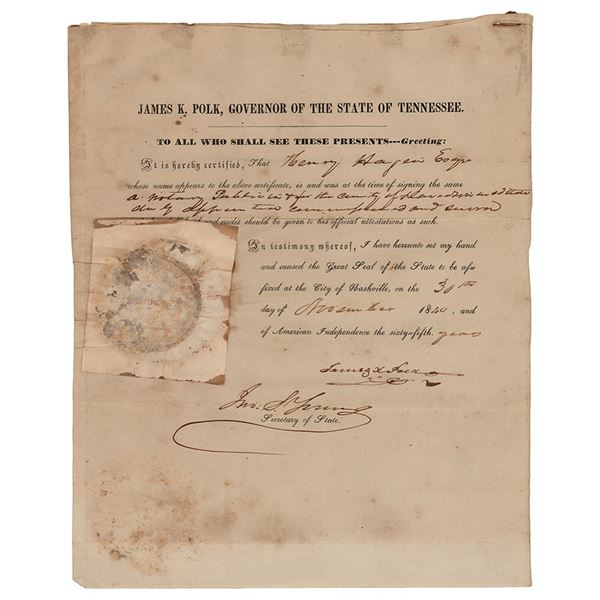 JAMES K. POLK, GOVERNOR OF THE STATE OF TENNESSEE.
TO ALL WHO SHALL SEE THESE PRESENTS---Greeting:
It is hereby certified, That Henry Hagan Esqr
whose name appears to the above certificate, is and was at the time of signing the same
a notary Public in & for the county of
duly and
and credit should be given to his official attestations as such.
In testimony whereof, I have hereunto set my hand
and caused the Great Seal of the State to be af-
fixed at the City of Nashville, on the 30th
day of November 1840, and
of American Independence the sixty-fifth. year
James K Polk
Jno. S. Young
Secretary of State.